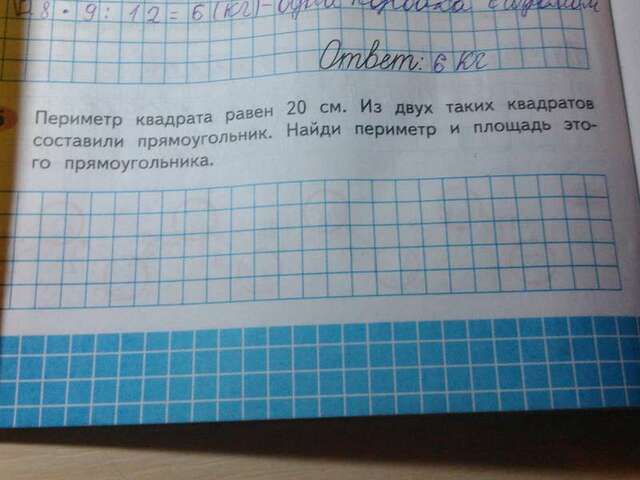 8 · 9 : 12 = 6 (кг) - одна коробка
Ответ: 6 кг
Периметр квадрата равен 20 см. Из двух таких квадратов
составили прямоугольник. Найди периметр и площадь это-
го прямоугольника.